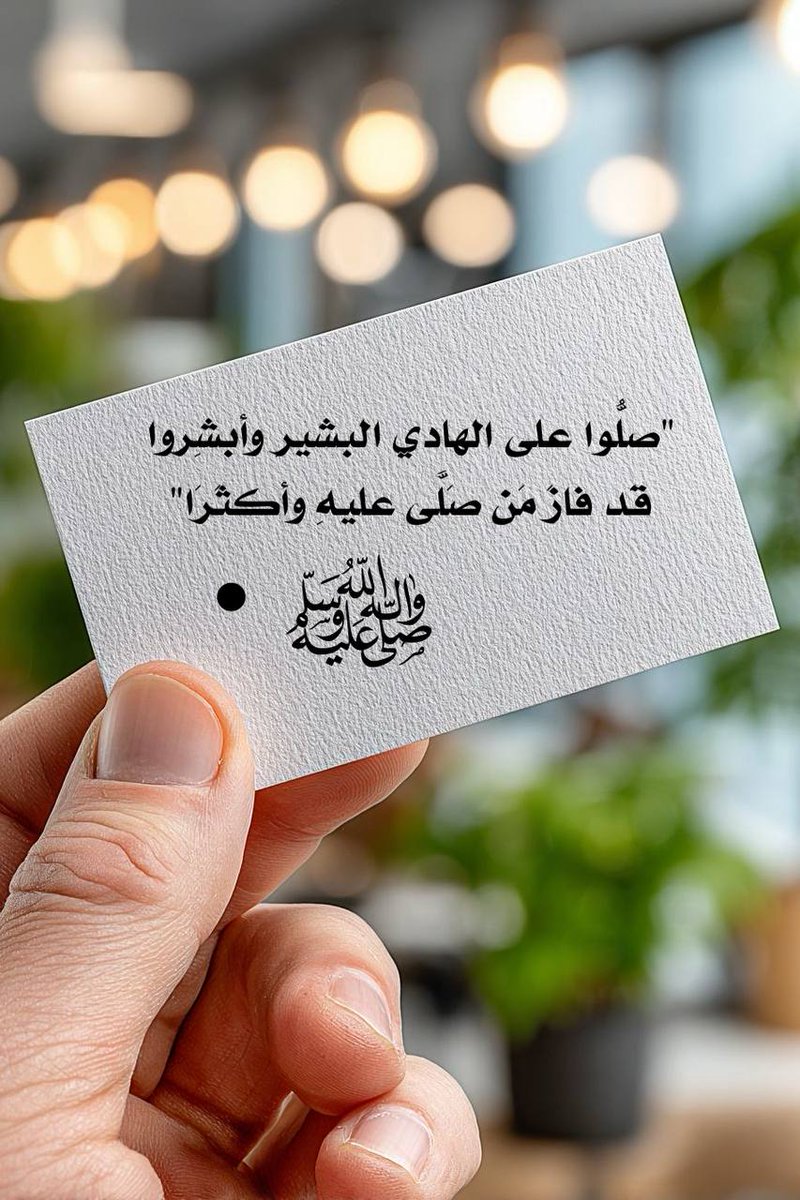 "صلُّوا على الهادي البشير وأبشِروا
قد فازَ مَن صَلَّى عليهِ وأكثَرَا"
صلى الله عليه وآله وسلم